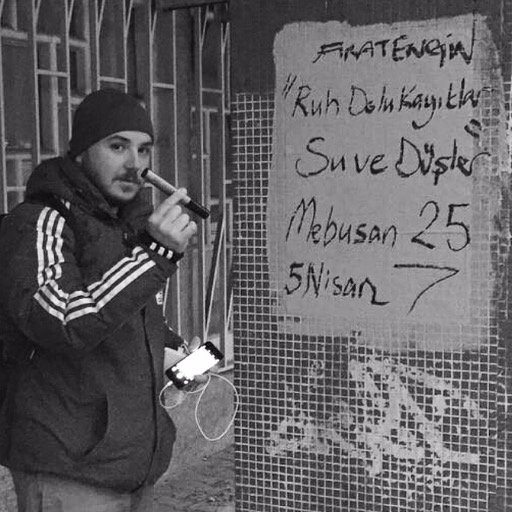 FIRAT ENGİN
"Ruh Dolu Kayıtlar
Su ve Düşler"
Mebusan 25
5 Nisan 7